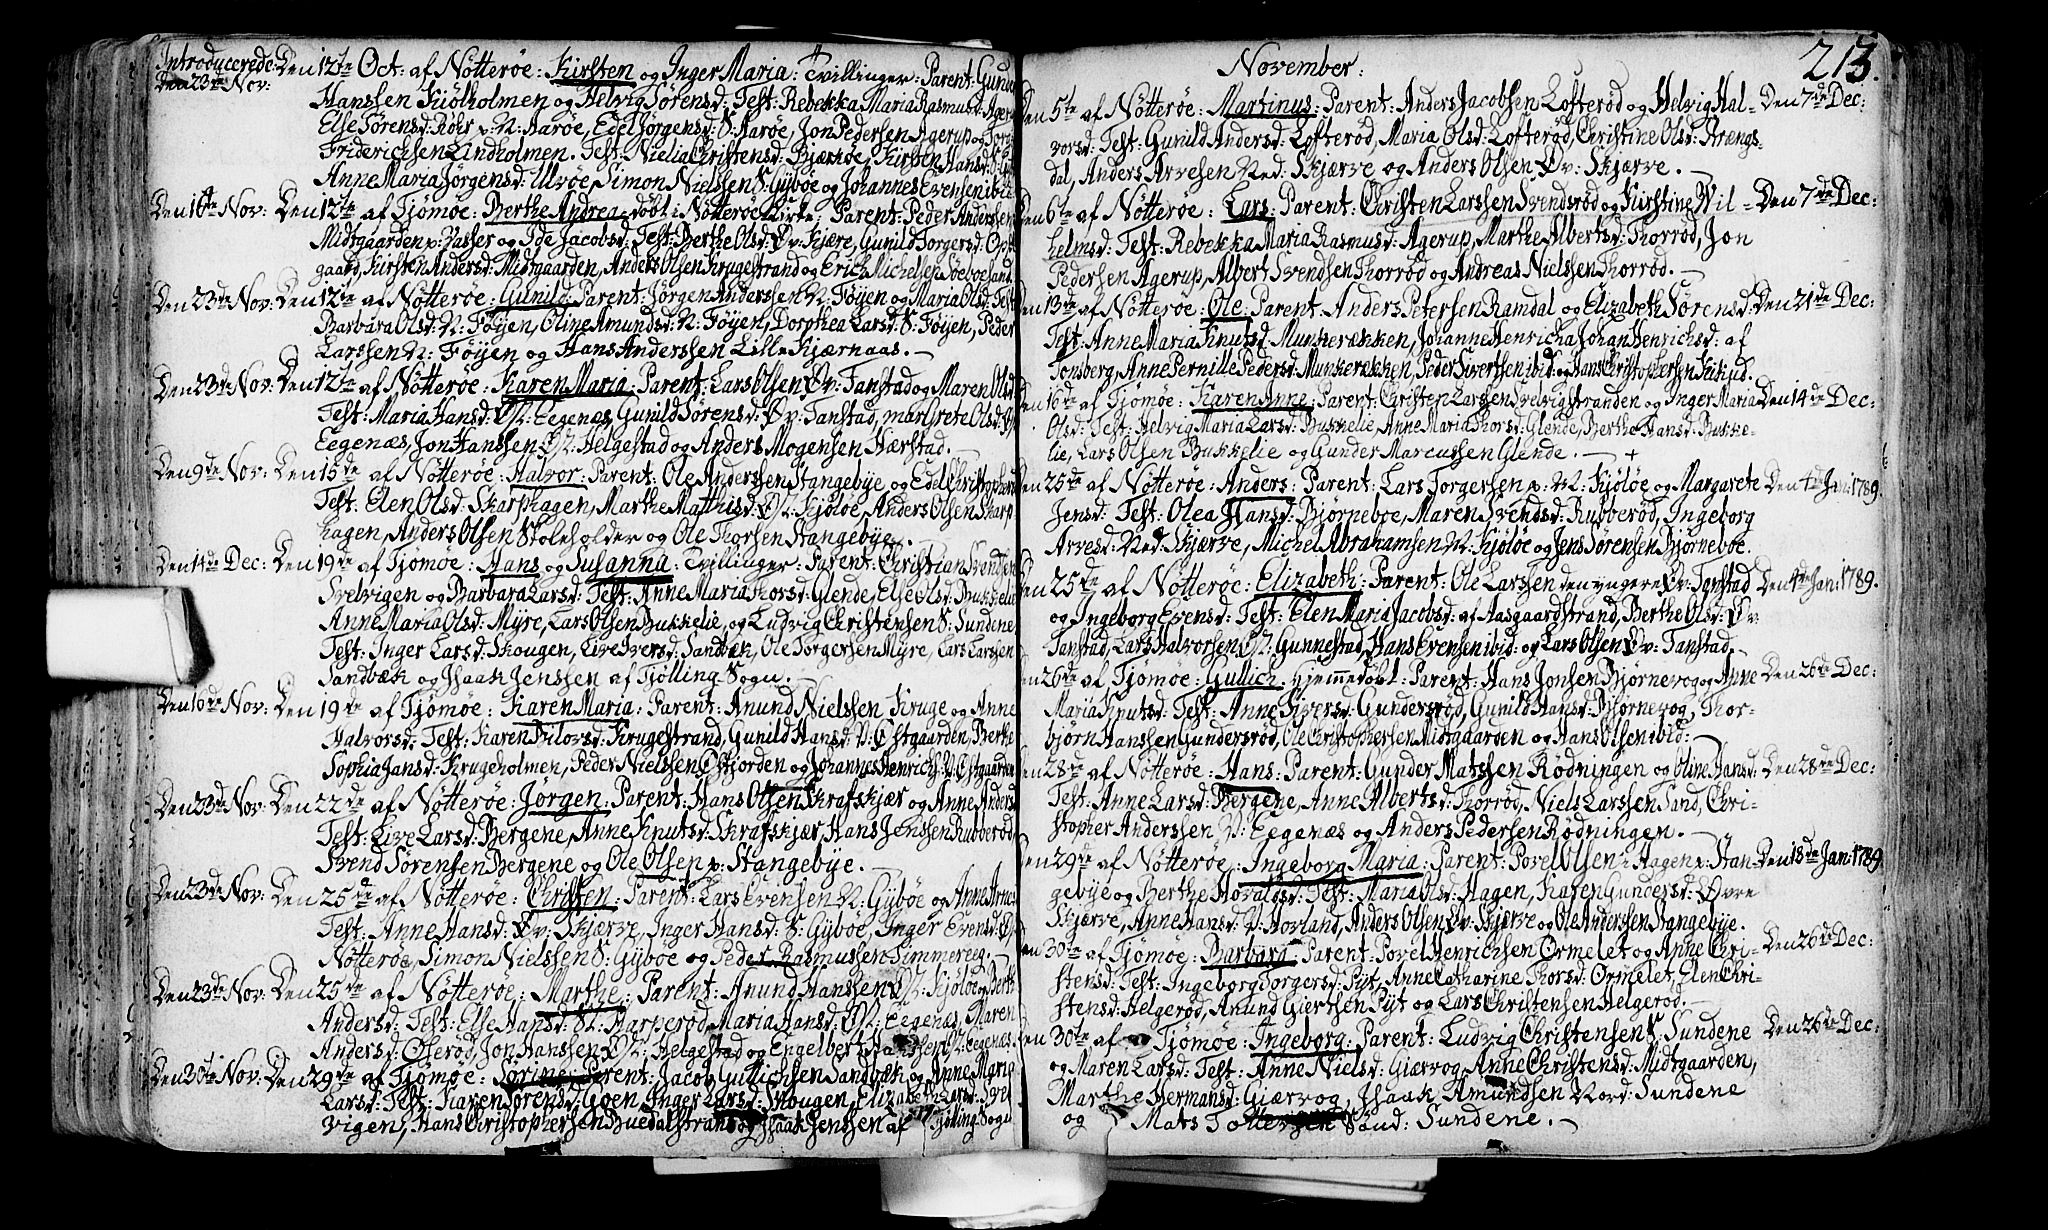 Introducerede
Den 23de Nov:
Den 12te Oct: af Nötterøe: Kirsten og Inger Maria: Tvillinger: Parent: Gunder
Hanssen Kiölholmen og Helvig Sørensd: Test: Rebekka Maria Rasmusd: Agerup
Else Sørensd: Röhr Aarøe, Edel Jørgensd: S: Aarøe, Jon Pedersen Agerup og
Friderichsen Lindholmen. Test: Nielia Christensd: Bjærkøe, Kirsten Hansd:
Anne Maria Jørgensd: Ulvøe, Simon Nielssen S: Gybøe og Johannes Evensen ibid:
Den 16de Nov: Den 12te af Tjömøe: Berthe Andrea döbt i Nötterøe Kirke: Parent: Peder Anderssen
Midtgaarden v: Vasser og Ide Jacobsd: Test: Berthe Olsd: Øv: Kjære, Gunild Torgersd:
gaard, Kirsten Andersd: Midtgaarden, Anders Olsen Krugestrand og Erich Michelsen Søeboesand
Den 23de Nov: Den 12te af Nötterøe: Gunild: Parent: Jørgen Anderssen N: Føyen og Maria Olsd: Test:
Barbara Olsd: N: Føyen, Oline Amundsd: N: Føyen, Dorothea Larsd: S: Føyen, Peder
Larssen N: Føyen og Hans Anderssen Lille Kjærnaas. —
Den 23de Nov: Den 12te af Nötterøe: Karen Maria: Parent: Lars Olsen Øv: Tanstad og Maren Olsd:
Test: Maria Hansd: N: Eegenæs, Gunild Sørensd: Øv: Tanstad, Margrete Olsd:
Eegenæs, Jon Hanssen N: Helgestad og Anders Mogensen Hærstad.
Den 9de Nov: Den 15de af Nötterøe: Halvor: Parent: Ole Anderssen Stangebye og Edel Christophersd:
Test: Elen Olsd: Skarphagen, Marthe Mathisd: N: Kjöløe, Anders Olsen Skarp
hagen, Anders Olsen Stoleholder og Ole Thorsen Stangebye.
Den 14de Dec: Den 19de af Tjömøe: Hans og Susanna: Tvillinger: Parent: Christian Svendsen
Svelvigen og Barbara Larsd: Test: Anne Maria Thorsd: Glende, Else Olsd: Bukkelie
Anne Maria Olsd: Myre, Lars Olsen Bukkelie, og Ludvig Christensen S: Sundene
Test: Inger Larsd: Skougen, Live Iversd: Sandbæk, Ole Torgersen Myre, Lars Larssen
Sandbæk og Isaak Jenssen af Tjölling Sogn. —
Den 16de Nov: Den 19de af Tjömøe: Karen Maria: Parent: Anund Nielssen Kruge og Anne
Halvorsd: Test: Karen Krugestrand, Gunild Hansd: V: Østgaarden, Berthe
Sophia Jansd: Krugeholmen, Peder Nielssen og Johannes Henrich: V: Østgaarden
Den 23de Nov: Den 22de af Nötterøe: Jørgen: Parent: Hans Olsen Skrafskjær og Anne Andersd:
Test: Live Larsd: Bergene, Anne Knutsd: Skrafskjær, Hans Jenssen Rubberød,
Svend Sørensen Bergene og Ole Olsen v: Stangebye. —
Den 23de Nov: Den 25de af Nötterøe: Christen: Parent: Lars Evensen N: Gybøe og Anne
Test: Anne Hansd: Øv: Skjærve, Inger Hansd: S: Gybøe, Inger Evensd:
Nötterøe, Simon Nielssen S: Gybøe og Peder Rasmussen Simmereeg.
Den 23de Nov: Den 25de af Nötterøe: Marthe: Parent: Anund Hanssen N: Kjöløe og
Andersd: Test: Else Hansd: St: Harperød, Maria Hansd: N: Eegenæs, Maren
Andersd: Oserød, Jon Hanssen N: Helgestad og Engelbert Hanssen N: Eegenæs.
Den 30te Nov: Den 29de af Tjömøe: Sörine: Parent: Jacob Gullichsen Sandbæk og Anne Maria
Larsd: Test: Karen Sörensd: Goen, Inger Larsd: Skougen, Elizabeth Larsd: Svel
vigen, Hans Christophersen Buedalstrand og Isaak Jenssen af Tjölling Sogn
213.
November:
Den 5te af Nötterøe: Martinus: Parent: Anders Jacobsen Lofterød og Helvig Hal- Den 7de Dec:
vorsd: Test: Gunild Andersd: Lofterød, Maria Olsd: Lofterød, Christine Olsd: Brængs-
dal, Anders Arvesen Ned: Skjærve og Anders Olsen Øv: Skjærve. —
Den 6te af Nötterøe: Lars: Parent: Christen Larssen Svendsrød og Kirstine Wil- Den 7de Dec:
helmsd: Test: Rebekka Maria Rasmusd: Agerup, Marthe Albertsd: Thorrød, Jon
Pedersen Agerup, Albert Svendsen Thorrød og Andreas Nielssen Thorrød. —
Den 13de af Nötterøe: Ole: Parent: Anders Petersen Ramdal og Elizabeth Sørensd: Den 21de Dec:
Test: Anne Maria Knutsd: Munkerækken, Johanne Henricha Johan Henrichsd: af
Tonsberg, Anne Pernille Pedersd: Munkerækken, Peder Sivertsen ibid: og Hans Christophersen
Den 16de af Tjömøe: Karen Anne: Parent: Christen Larssen Svelvigstranden og Inger Maria Den 14de Dec:
Olsd: Test: Helvig Maria Larsd: Bukkelie, Anne Maria Thorsd: Glende, Berthe Hansd: Bukke-
lie, Lars Olsen Bukkelie og Gunder Marcussen Glende. — +
Den 25de af Nötterøe: Anders: Parent: Lars Torgersen v: N: Kjöløe og Margarete Den 4de Jan: 1789.
Jensd: Test: Olea Hansd: Bjørneboe, Maren Svendsd: Rubberød, Ingeborg
Arvesd: Ned: Skjærve, Michel Abrahamsen N: Kjöløe og Jens Sørensen Bjørneboe.
Den 25de af Nötterøe: Elizabeth: Parent: Ole Larssen den yngere Øv: Tanstad Den 4de Jan: 1789.
og Ingeborg Evensd: Test: Elen Maria Jacobsd: af Aasgaardstrand, Berthe Olsd: Øv:
Tanstad, Lars Halvorsen N: Gunnestad, Hans Evensen ibid: og Lars Olsen Øv: Tanstad.
Den 26de af Tjömøe: Gullich hjemmedöbt: Parent: Hans Jonsen Bjørnevog og Anne Den 26de Dec:
Maria Knutsd: Test: Anne Iversd: Gundersrød, Gunild Hansd: Bjørnevog, Thor-
bjørn Hanssen Gundersrød, Ole Christophersen Midtgaarden og Hans Olsen ibid:
Den 28de af Nötterøe: Hans: Parent: Gunder Matssen Rødningen og Oline Hansd: Den 28de Dec:
Test: Anne Larsd: Bergene, Anne Albertsd: Thorrød, Niels Larssen Sand, Chri-
stopher Anderssen V: Eegenæs og Anders Pedersen Rødningen. —
Den 29de af Nötterøe: Ingeborg Maria: Parent: Povel Olsen Hagen v: Stan- Den 18de Jan: 1789
gebye og Berthe Hovalsd: Test: Maria Olsd: Hagen, Karen Gundersd: Øvre
Skjærve, Anne Hansd: V: Hovland, Anders Olsen Øv: Skjærve og Ole Anderssen Stangebye.
Den 30te af Tjömøe: Barbara: Parent: Povel Henrichsen Ormelet og Anne Chri- Den 26de Dec:
stensd: Test: Ingeborg Torgersd: Pyt, Anne Catharine Thorsd: Ormelet, Elen Chri-
stensd: Helgerød, Anund Giertsen Pyt og Lars Christensen Helgerød. —
Den 30te af Tjömøe: Ingeborg: Parent: Ludvig Christensen S: Sundene Den 26de Dec:
og Maren Larsd: Test: Anne Nielsd: Giærvog, Anne Christensd: Midtgaarden,
Marthe Hermansd: Giærvog, Isaak Amundsen Nord: Sundene
og Mats Tollersen Sønd: Sundene. —